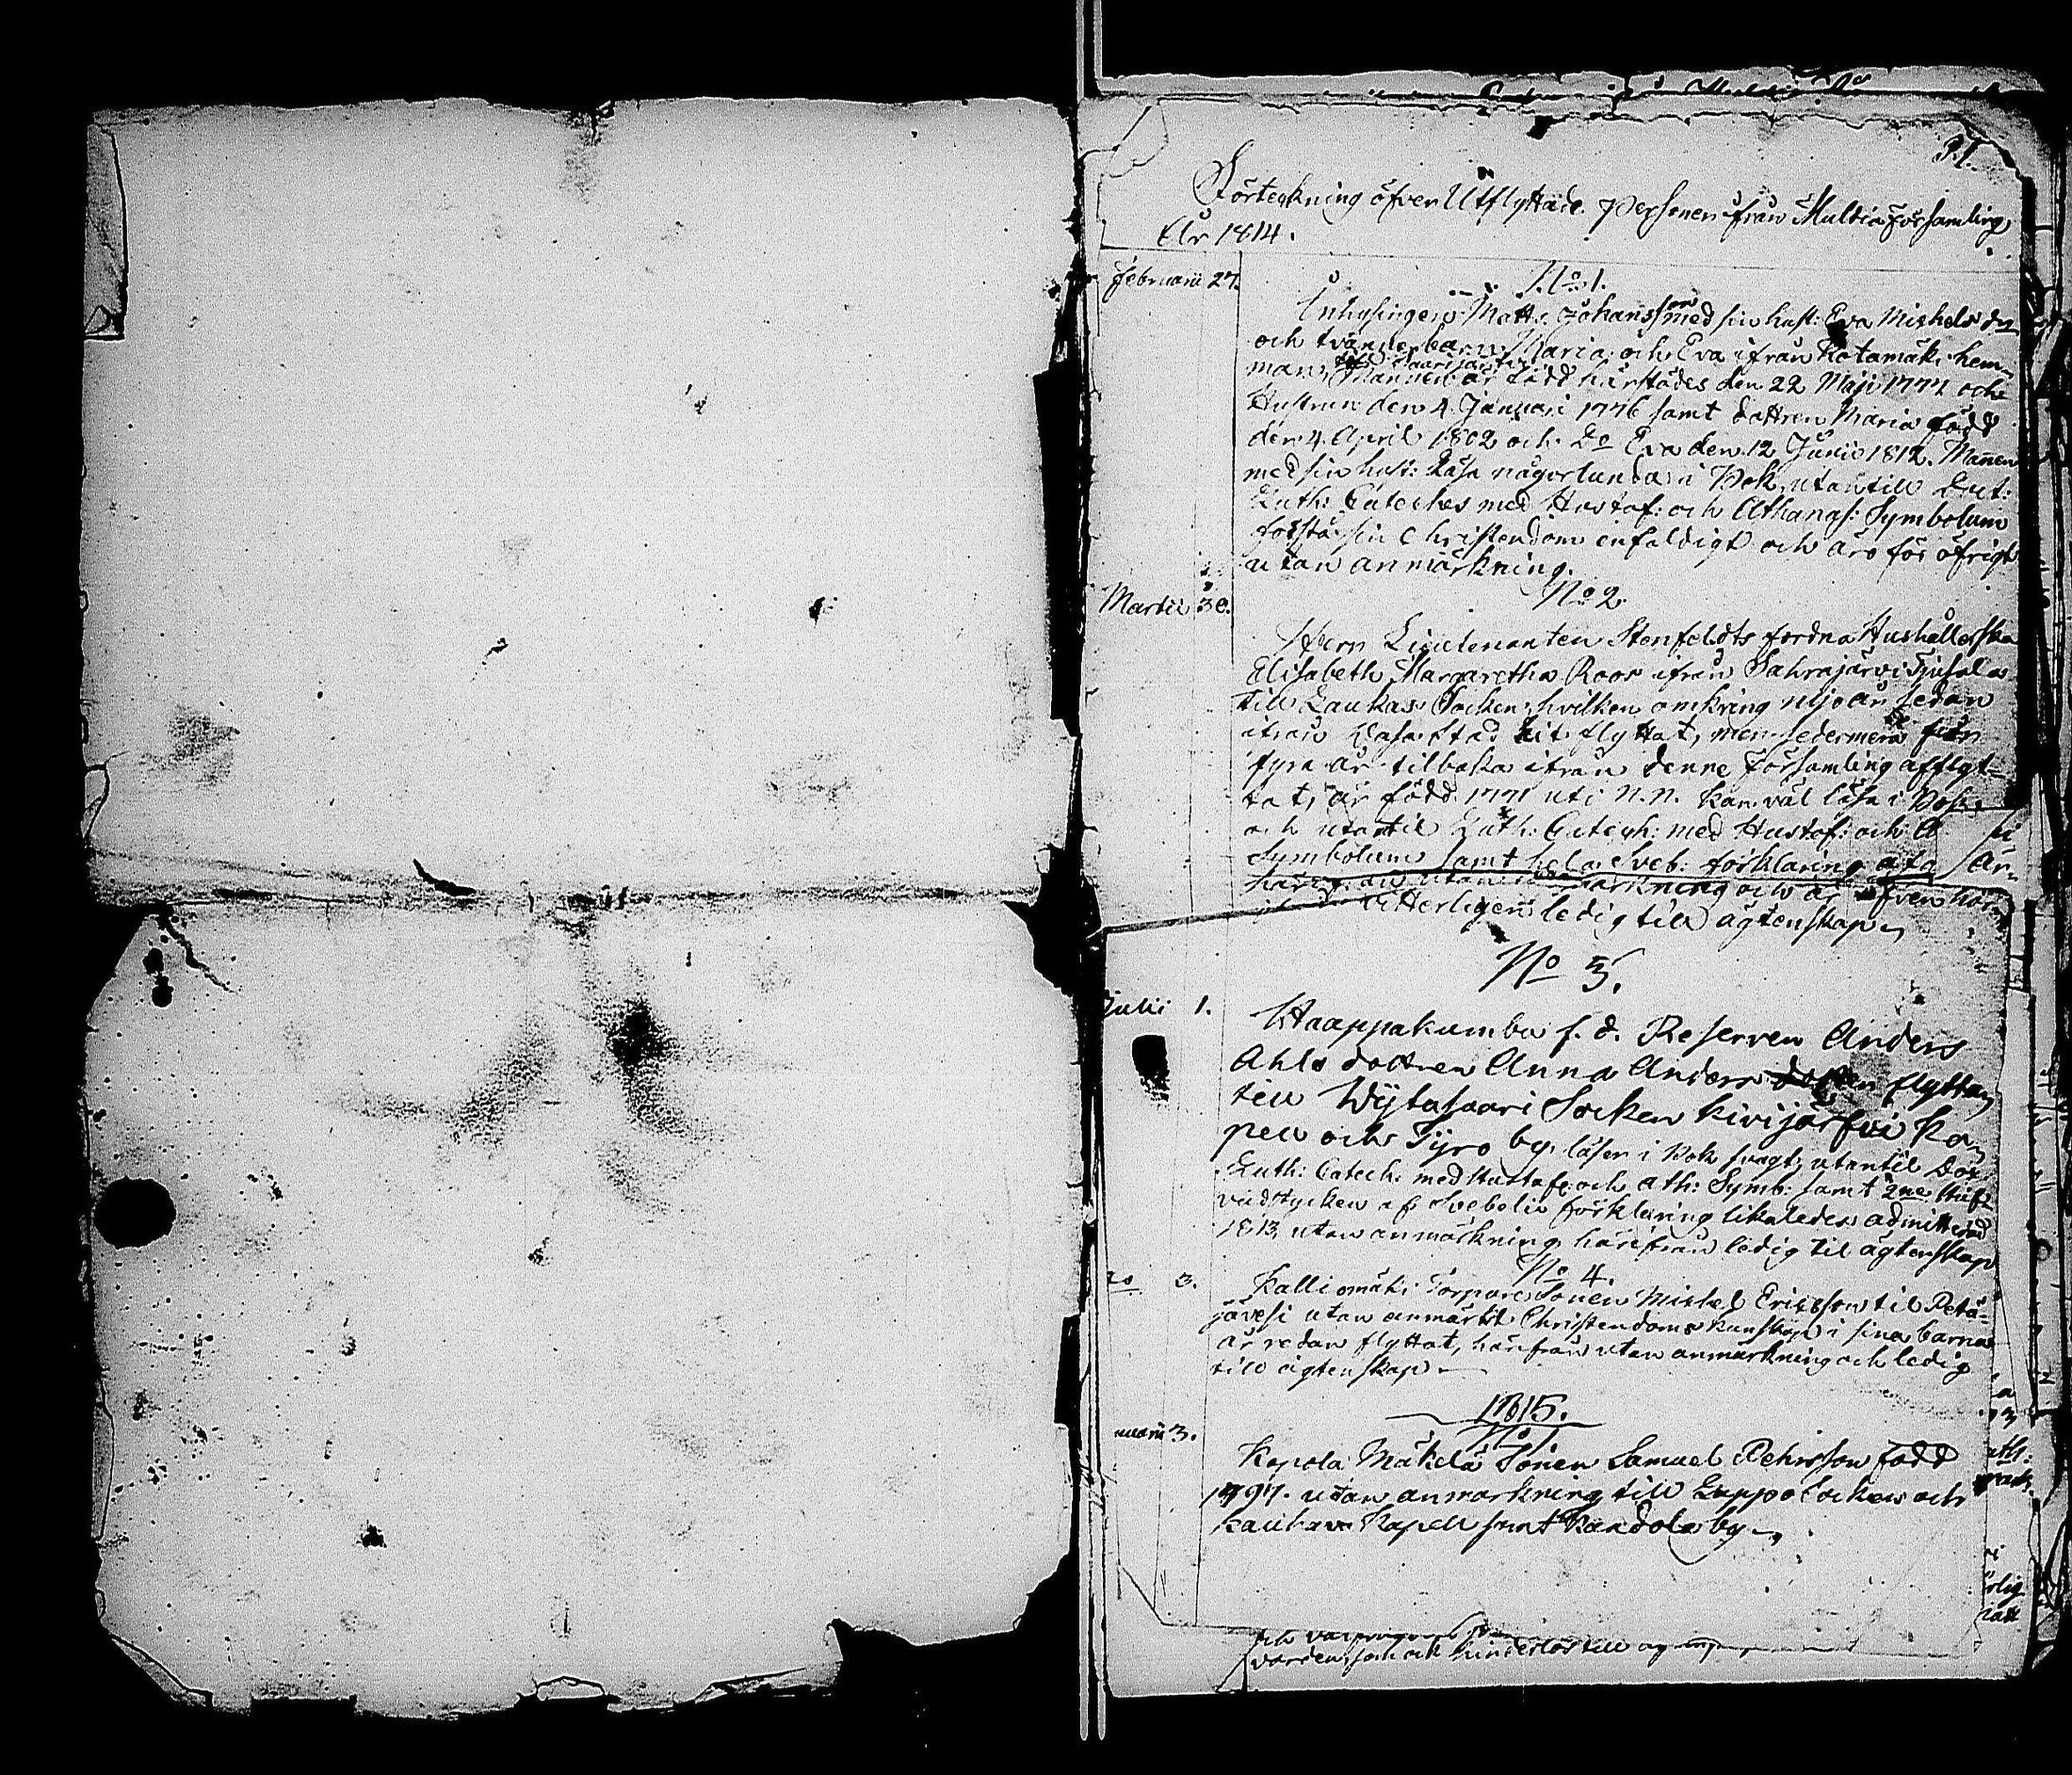 31.
Förteckning öfver Utflyttade Personer ifrån Multia församling
År 1814.
Februarii 27.
No 1.
Inhysingen Matts Johansson med sin hust: Eva Michels dr
och tvänne barn Maria och Eva ifrån Kotamäki hem-
man, till Saarijärvi
Mannen är född härstädes den 22 Maji 1774 och
Hustrun den 4 Januari 1776 samt dottren Maria född
den 4 April 1802 och Do Eva den 12 Junii 1812. Mannen
med sin hust: läsa någorlunda i Bok, utantill Doct:
Luth: Cateches med Hustaf: och Athanas: Symbolum
förstå sin Christendom enfaldigt och äro för öfrigt
utan anmärkning.
Martii 30.
No 2.
Herr Lieutenanten Stenfeldts fordna Hushållerska
Elisabeth Margaretha Roos ifrån Sahrajärvi
till Laukas Socken, hvilken omkring nijo år sedan
ifrån Vasa Stad hit flyttat, men sedermera för
fyra år tilbaka ifrån denne Församling afflyt-
tat, är född 1771 uti N.N. kan väl läsa i Bok
och utantil Luth: Catech: med Hustof: och
Symbolum samt hela Sveb: förklaring
härifrån utan anmärkning och är äfven här
ledig till ägtenskap
No 3.
Julii 1.
Haappakumbu f. d. Reserven Anders
Ahls dottren Anna Anders dotter flyttar
till Wijtasaari Socken Kivijärfvi Ka-
pell och Tyro by, läser i Bok svagt, utantil Doct:
Luth: Catech: med Hustafl: och Ath: Symb: samt 2ne Huf-
vudstycken af Svebelii förklaring likaledes admitterad
1813, utan anmärkning härifrån ledig til ägtenskap
No 4.
3.
Kalliomäki Torpare Sonen Michel Ericsson til Petä-
jävesi utan anmärkt Christendoms kunskap i sina barna
år redan flyttat, härifrån utan anmärkning och ledig
till ägtenskap
1815.
No 1.
3.
Kopola Mäkelä Sonen Samuel Pehrsson född
1797. utan anmärkning till Lappo Socken och
Kauhava Kapell samt Kandola by
och
vorden, och hinderlös till